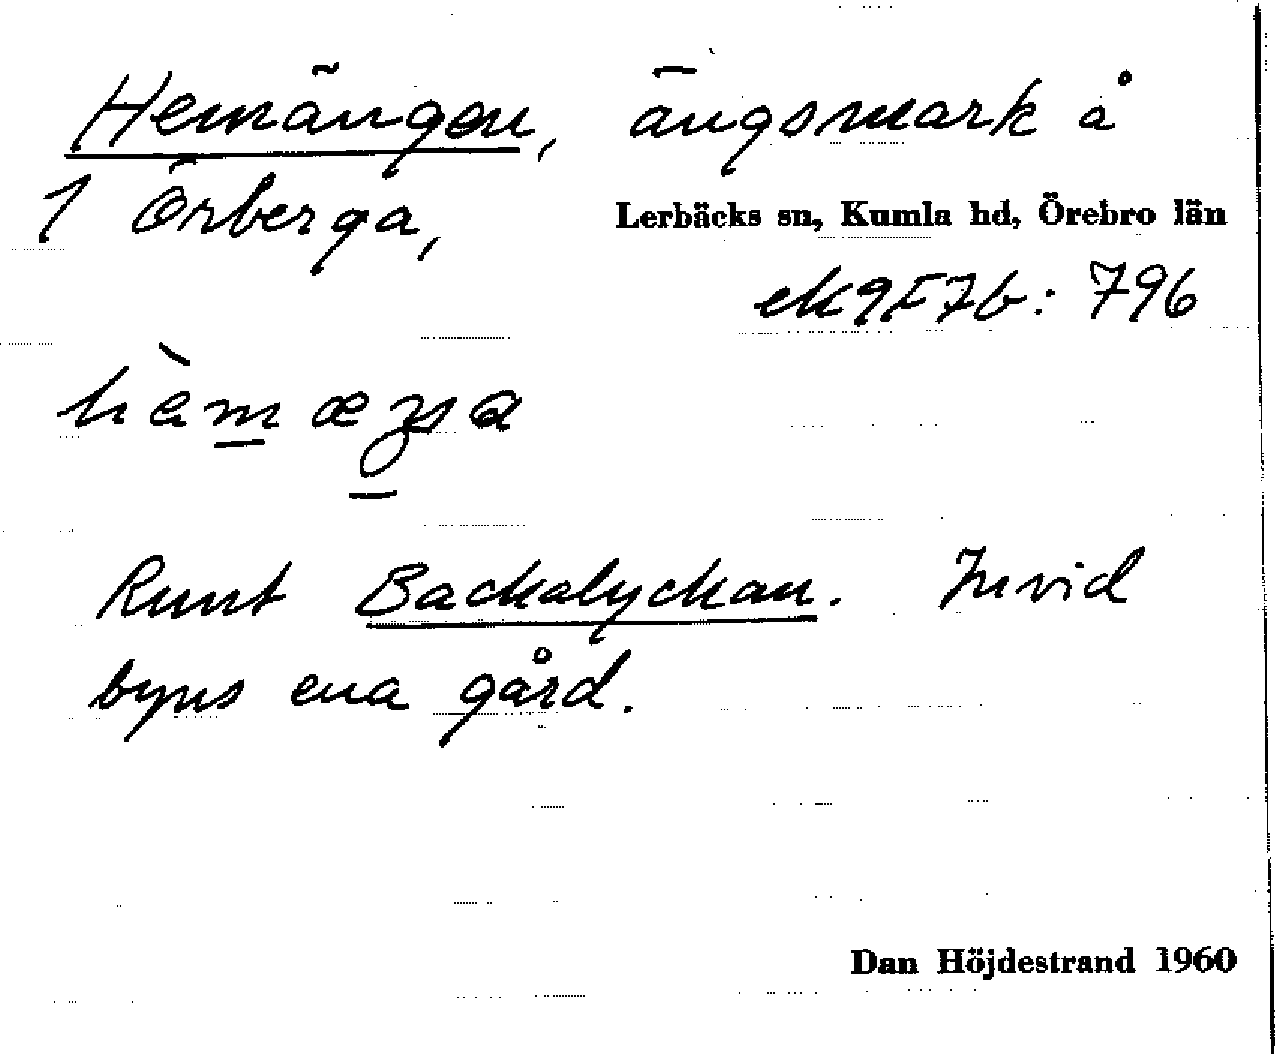 Hemängen, ängsmark å
1 Örberga,
Lerbäcks sn, Kumla hd, Örebro län
ek9F7b: 796
Runt Backalyckan. Invid
byns ena gård.
Dan Höjdestrand 1960